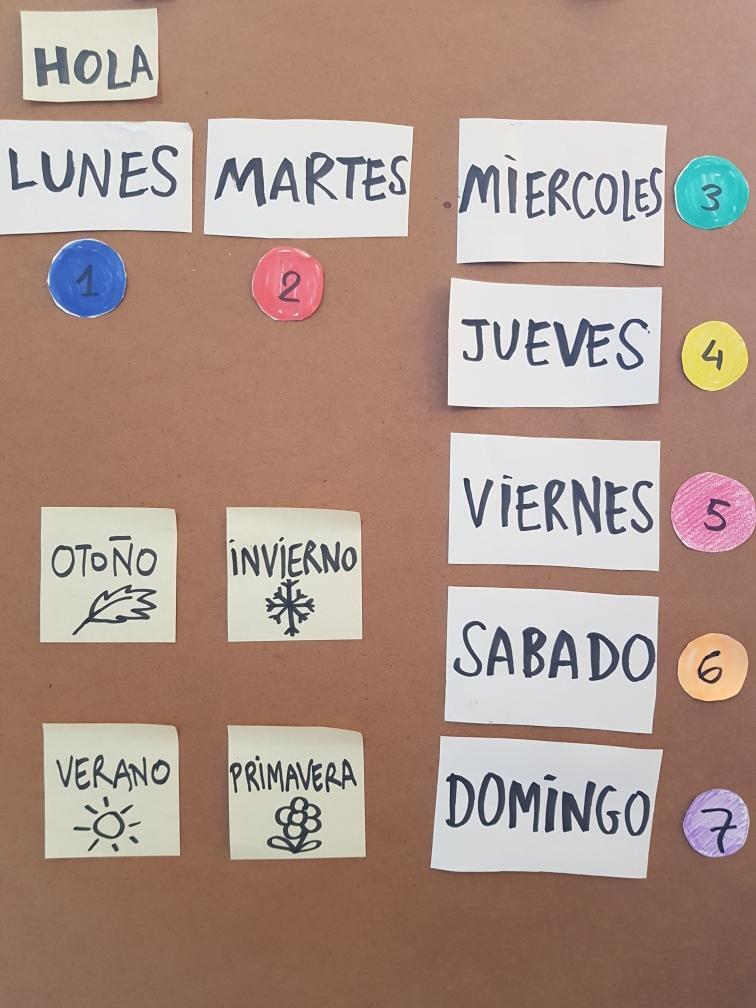 HOLA
LUNES
1
MARTES
2
MiERCOLES
3
JUEVES
4
ViERNES
5
SABADO
6
DOMiNGO
7
OToÑO
iNViERNO
VERANO
PRiMAVERA